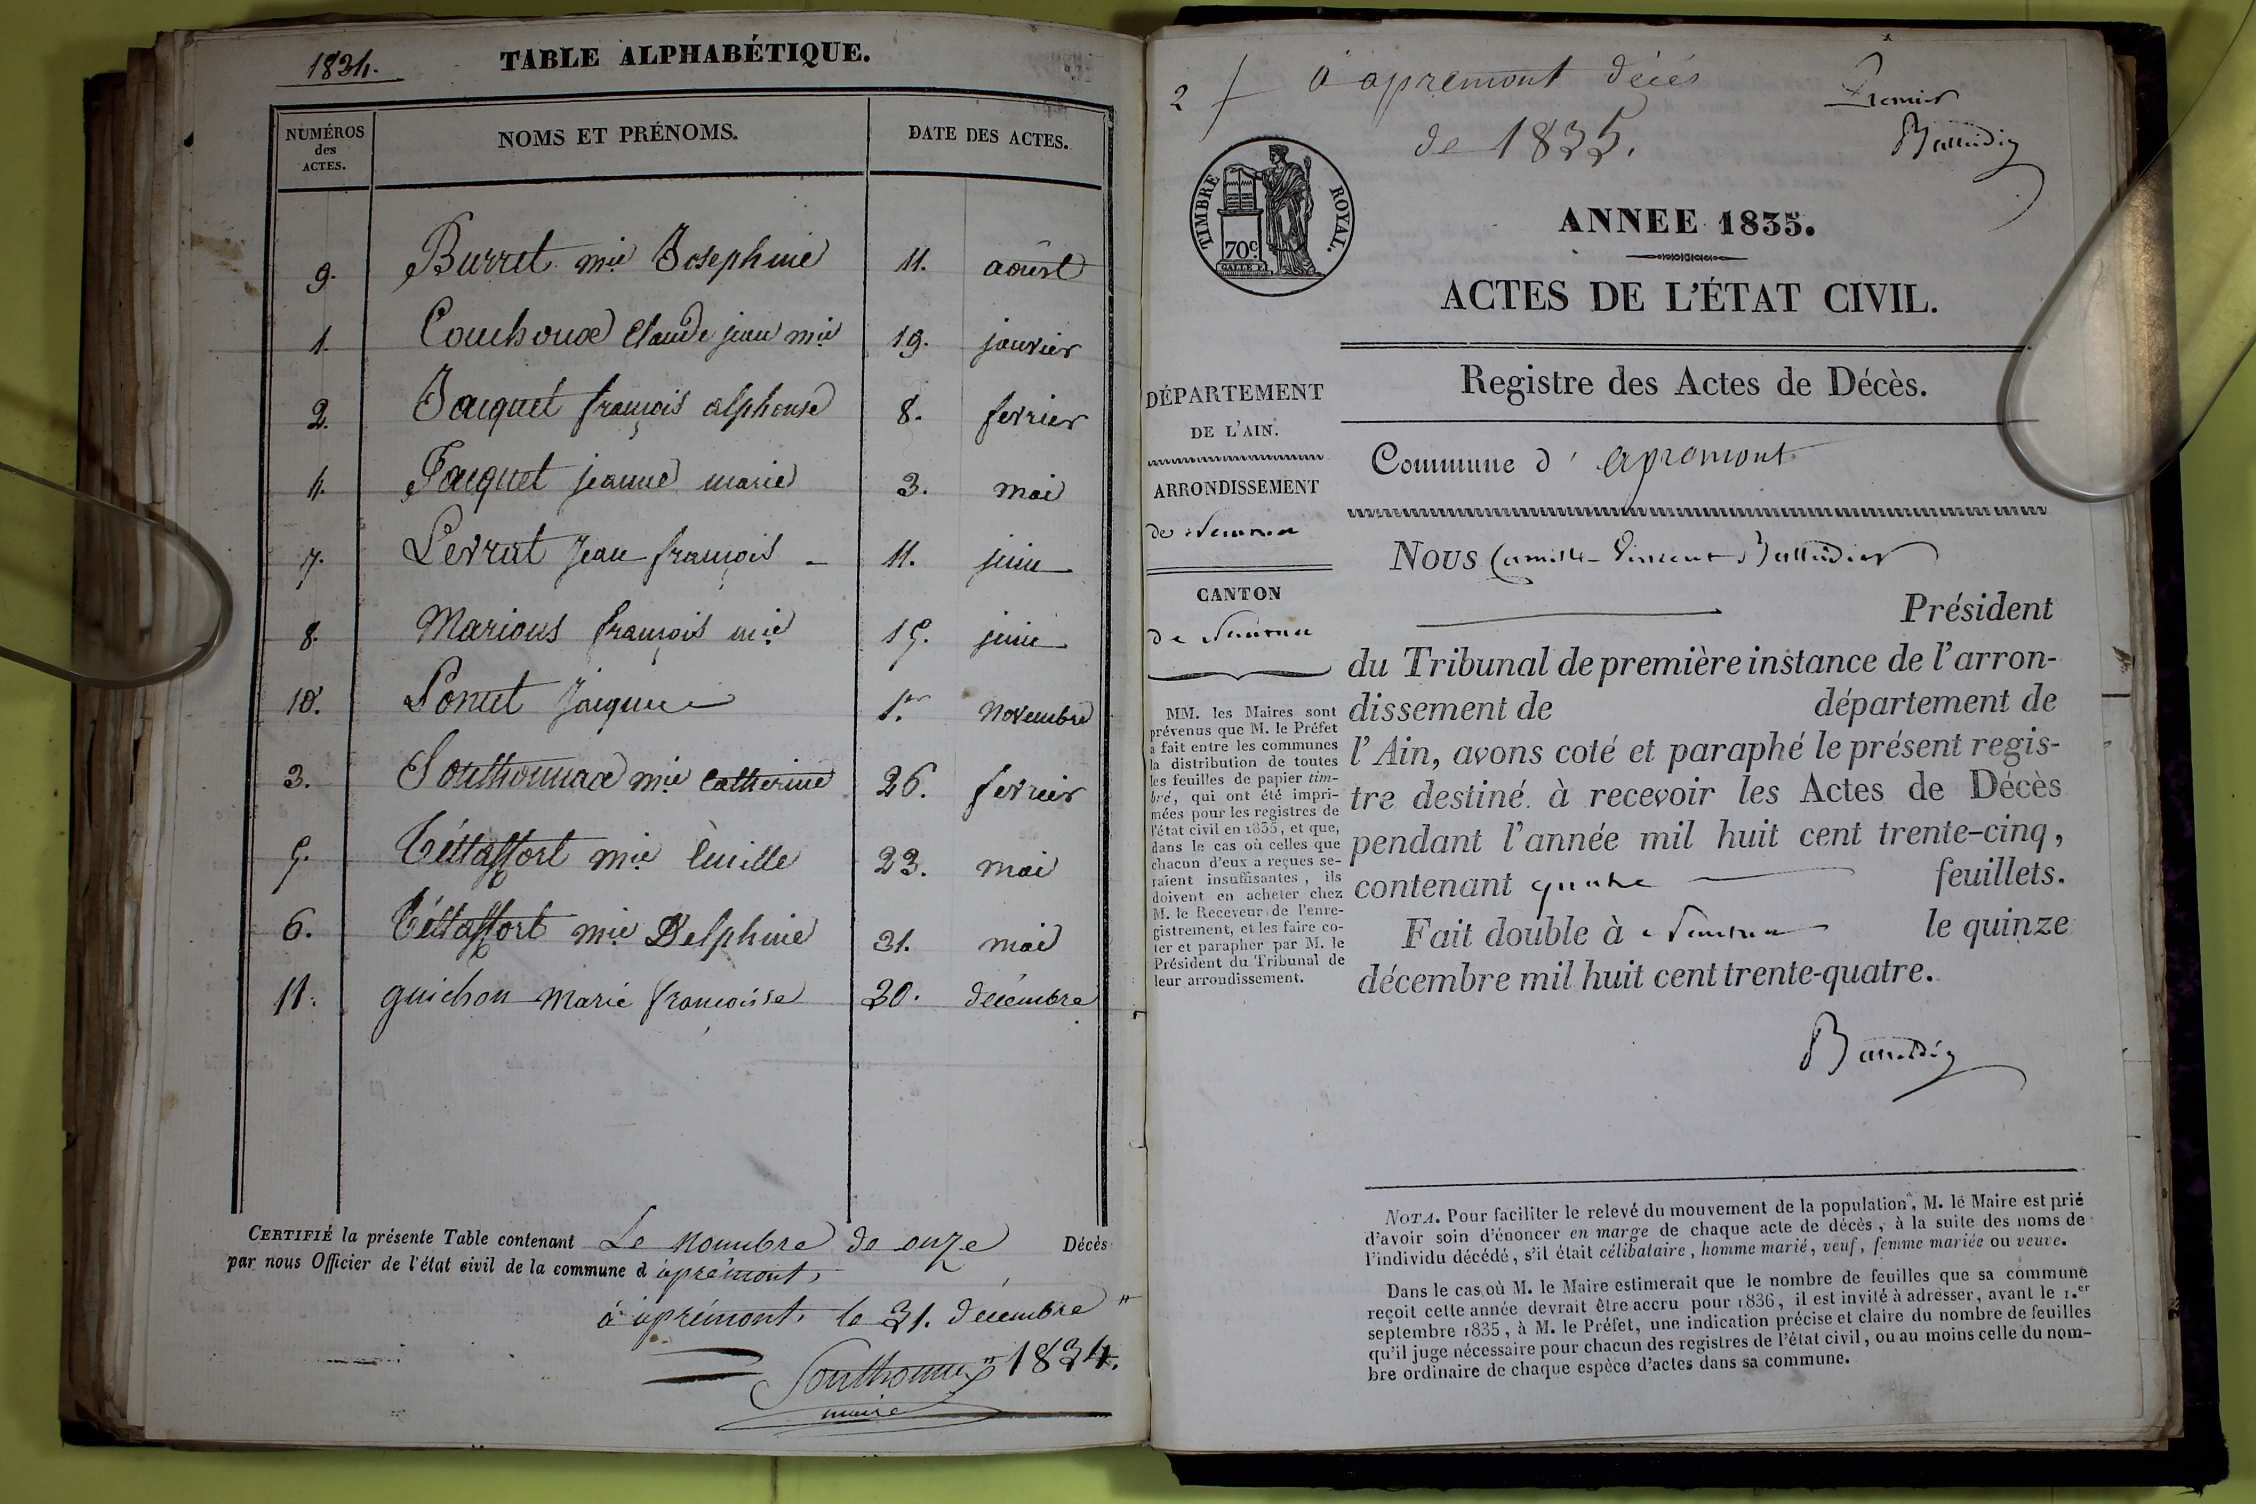 1834.
TABLE ALPHABÉTIQUE.
NUMÉROS des ACTES.
NOMS ET PRÉNOMS.
DATE DES ACTES.
9. Burret mie Josephine 11. août
1. Couchoux Claude jean mie 19. janvier
2. Jacquet françois alphonse 8. fevrier
4. Jacquet jeanne marie 3. mai
7. Levrat Jean françois 11. juin
8. Marious françois mie 15. juin
10. Poncet Jacques 1er novembre
3. Southonnax mie Catherine 26. fevrier
5. mie 23. mai
6. mie Delphine 31. mai
11. guichon marie françoise 20. décembre
CERTIFIÉ la présente Table contenant Le nombre de onze Décès
par nous Officier de l'état civil de la commune d'apremont,
à apremont, le 31. décembre
1834.
Southonnax
maire
2
à apremont décès
de 1835.
Premier
TIMBRE ROYAL.
70c
ANNEE 1835.
ACTES DE L'ÉTAT CIVIL.
Registre des Actes de Décès.
DÉPARTEMENT
DE L'AIN.
ARRONDISSEMENT
de Nantua
CANTON
de Nantua
MM. les Maires sont
prévenus que M. le Préfet
a fait entre les communes
la distribution de toutes
les feuilles de papier tim-
bré, qui ont été impri-
mées pour les registres de
l'état civil en 1835, et que,
dans le cas où celles que
chacun d'eux a reçues se-
raient insuffisantes, ils
doivent en acheter chez
M. le Receveur de l'enre-
gistrement, et les faire co-
ter et parapher par M. le
Président du Tribunal de
leur arrondissement.
Commune d'apremont
NOUS Camille Vincent
Président
du Tribunal de première instance de l'arron-
dissement de département de
l'Ain, avons coté et paraphé le présent regis-
tre destiné à recevoir les Actes de Décès
pendant l'année mil huit cent trente-cinq,
contenant quatre feuillets.
Fait double à Nantua le quinze
décembre mil huit cent trente-quatre.
NOTA. Pour faciliter le relevé du mouvement de la population, M. le Maire est prié
d'avoir soin d'énoncer en marge de chaque acte de décès, à la suite des noms de
l'individu décédé, s'il était célibataire, homme marié, veuf, femme mariée ou veuve.
Dans le cas où M. le Maire estimerait que le nombre de feuilles que sa commune
reçoit cette année devrait être accru pour 1836, il est invité à adresser, avant le 1.er
septembre 1835, à M. le Préfet, une indication précise et claire du nombre de feuilles
qu'il juge nécessaire pour chacun des registres de l'état civil, ou au moins celle du nom-
bre ordinaire de chaque espèce d'actes dans sa commune.